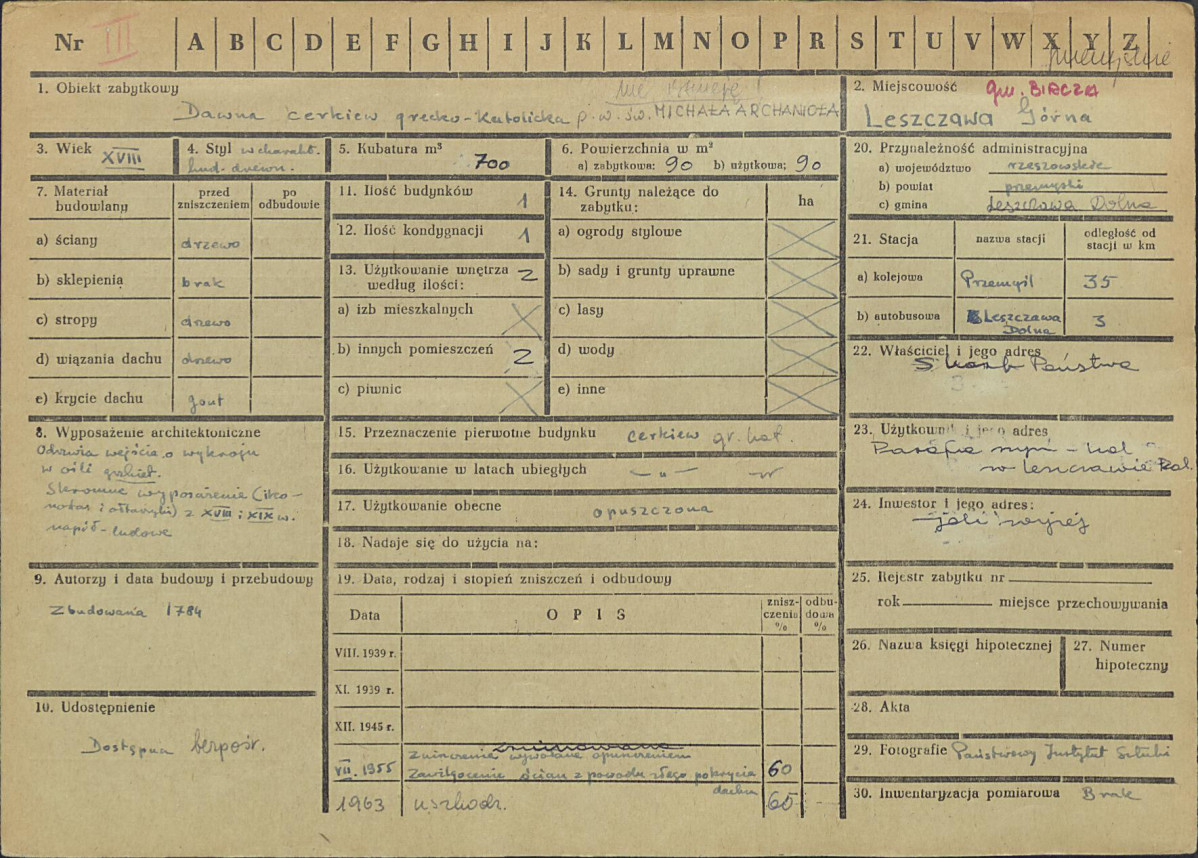 Nr III A B C D E F G H I J K L M N O P R S T U V W X Y Z
1. Obiekt zabytkowy
nie istnieje!
Dawna cerkiew grecko-katolicka p.w. św. MICHAŁA ARCHANIOŁA
2. Miejscowość gm. BIRCZA
Leszczawa Górna
3. Wiek XVIII
4. Styl w charakt.
bud. drewn.
5. Kubatura m³ 700
6. Powierzchnia w m²
a) zabytkowa: 90 b) użytkowa: 90
7. Materiał budowlany
przed zniszczeniem
po odbudowie
a) ściany drzewo
b) sklepienia brak
c) stropy drzewo
d) wiązania dachu drzewo
e) krycie dachu gont
8. Wyposażenie architektoniczne
Odrzwia wejścia o wykroju
w ośli grzbiet.
Skromne wyposażenie (iko-
nostas i ołtarzyki) z XVIII i XIX w.
napół-ludowe
9. Autorzy i data budowy i przebudowy
Zbudowana 1784
10. Udostępnienie
Dostępna bezpośr.
11. Ilość budynków 1
12. Ilość kondygnacji 1
13. Użytkowanie wnętrza 2
według ilości:
a) izb mieszkalnych
b) innych pomieszczeń 2
c) piwnic
14. Grunty należące do
zabytku:
ha
a) ogrody stylowe
b) sady i grunty uprawne
c) lasy
d) wody
e) inne
15. Przeznaczenie pierwotne budynku cerkiew gr. kat.
16. Użytkowanie w latach ubiegłych - „ -
17. Użytkowanie obecne opuszczona
18. Nadaje się do użycia na:
19. Data, rodzaj i stopień zniszczeń i odbudowy
Data
OPIS
zniszczenia %
odbudowa %
VIII. 1939 r.
XI. 1939 r.
XII. 1945 r.
VII. 1955
Zniszczenie wywołane opuszczeniem
Zawilgocenie ścian z powodu złego pokrycia
dachu
60
1963 uszkodz. 65
20. Przynależność administracyjna
a) województwo rzeszowskie
b) powiat przemyski
c) gmina Leszczawa Dolna
21. Stacja
nazwa stacji
odległość od
stacji w km
a) kolejowa Przemyśl 35
b) autobusowa Leszczawa
Dolna
3
22. Właściciel i jego adres
Skarb Państwa
23. Użytkownik i jego adres
Parafia rzym-kat
w Leszczawie Dol.
24. Inwestor i jego adres:
jak wyżej
25. Rejestr zabytku nr
rok miejsce przechowywania
26. Nazwa księgi hipotecznej
27. Numer
hipoteczny
28. Akta
29. Fotografie Państwowy Instytut Sztuki
30. Inwentaryzacja pomiarowa Brak